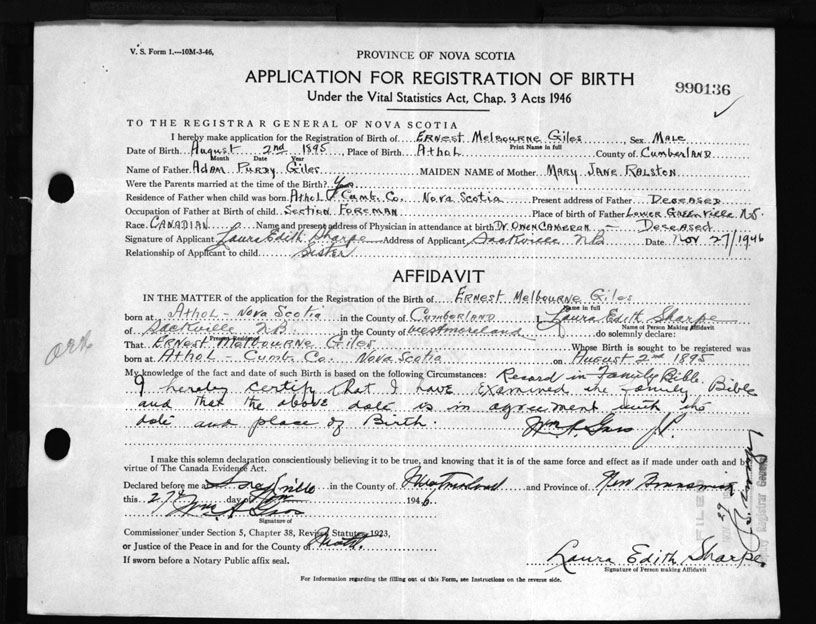 V. S. Form 1.—10M-3-46.
PROVINCE OF NOVA SCOTIA
APPLICATION FOR REGISTRATION OF BIRTH
990136
Under the Vital Statistics Act, Chap. 3 Acts 1946
TO THE REGISTRAR GENERAL OF NOVA SCOTIA
I hereby make application for the Registration of Birth of Ernest Melbourne Giles, Sex Male
Print Name in full
Date of Birth August 2nd 1895 Place of Birth Athol County of Cumberland
Month Date Year
Name of Father Adam Purdy Giles MAIDEN NAME of Mother Mary Jane Ralston
Were the Parents married at the time of the Birth? Yes
Residence of Father when child was born Athol Cumb. Co. Nova Scotia Present address of Father Deceased
Occupation of Father at Birth of child Section Foreman Place of birth of Father Lower Greenville N.S.
Race Canadian Name and present address of Physician in attendance at birth Dr Owen Cameron - Deceased
Signature of Applicant Laura Edith Sharpe Address of Applicant Sackville N.B Date Nov 27/1946
Relationship of Applicant to child Sister
AFFIDAVIT
IN THE MATTER of the application for the Registration of the Birth of Ernest Melbourne Giles
Name in full
born at Athol - Nova Scotia in the County of Cumberland I, Laura Edith Sharpe
Name of Person Making Affidavit
of Sackville N.B in the County of Westmoreland do solemnly declare:
Present Residence
That Ernest Melbourne Giles Whose Birth is sought to be registered was
born at Athol - Cumb. Co. Nova Scotia on August 2nd 1895
My knowledge of the fact and date of such Birth is based on the following Circumstances: Record in Family Bible.
I hereby certify that I have examined the family Bible
and that the above date is in agreement with the
date and place of Birth. Wm A. Gass J.P.
I make this solemn declaration conscientiously believing it to be true, and knowing that it is of the same force and effect as if made under oath and by
virtue of The Canada Evidence Act.
Declared before me at Sackville in the County of Westmorland and Province of New Brunswick
this 27 day of Nov 1946
Wm A Gass
Signature of
Commissioner under Section 5, Chapter 38, Revised Statutes 1923,
or Justice of the Peace in and for the County of
Laura Edith Sharpe
If sworn before a Notary Public affix seal.
Signature of Person making Affidavit
For Information regarding the filling out of this Form, see Instructions on the reverse side.